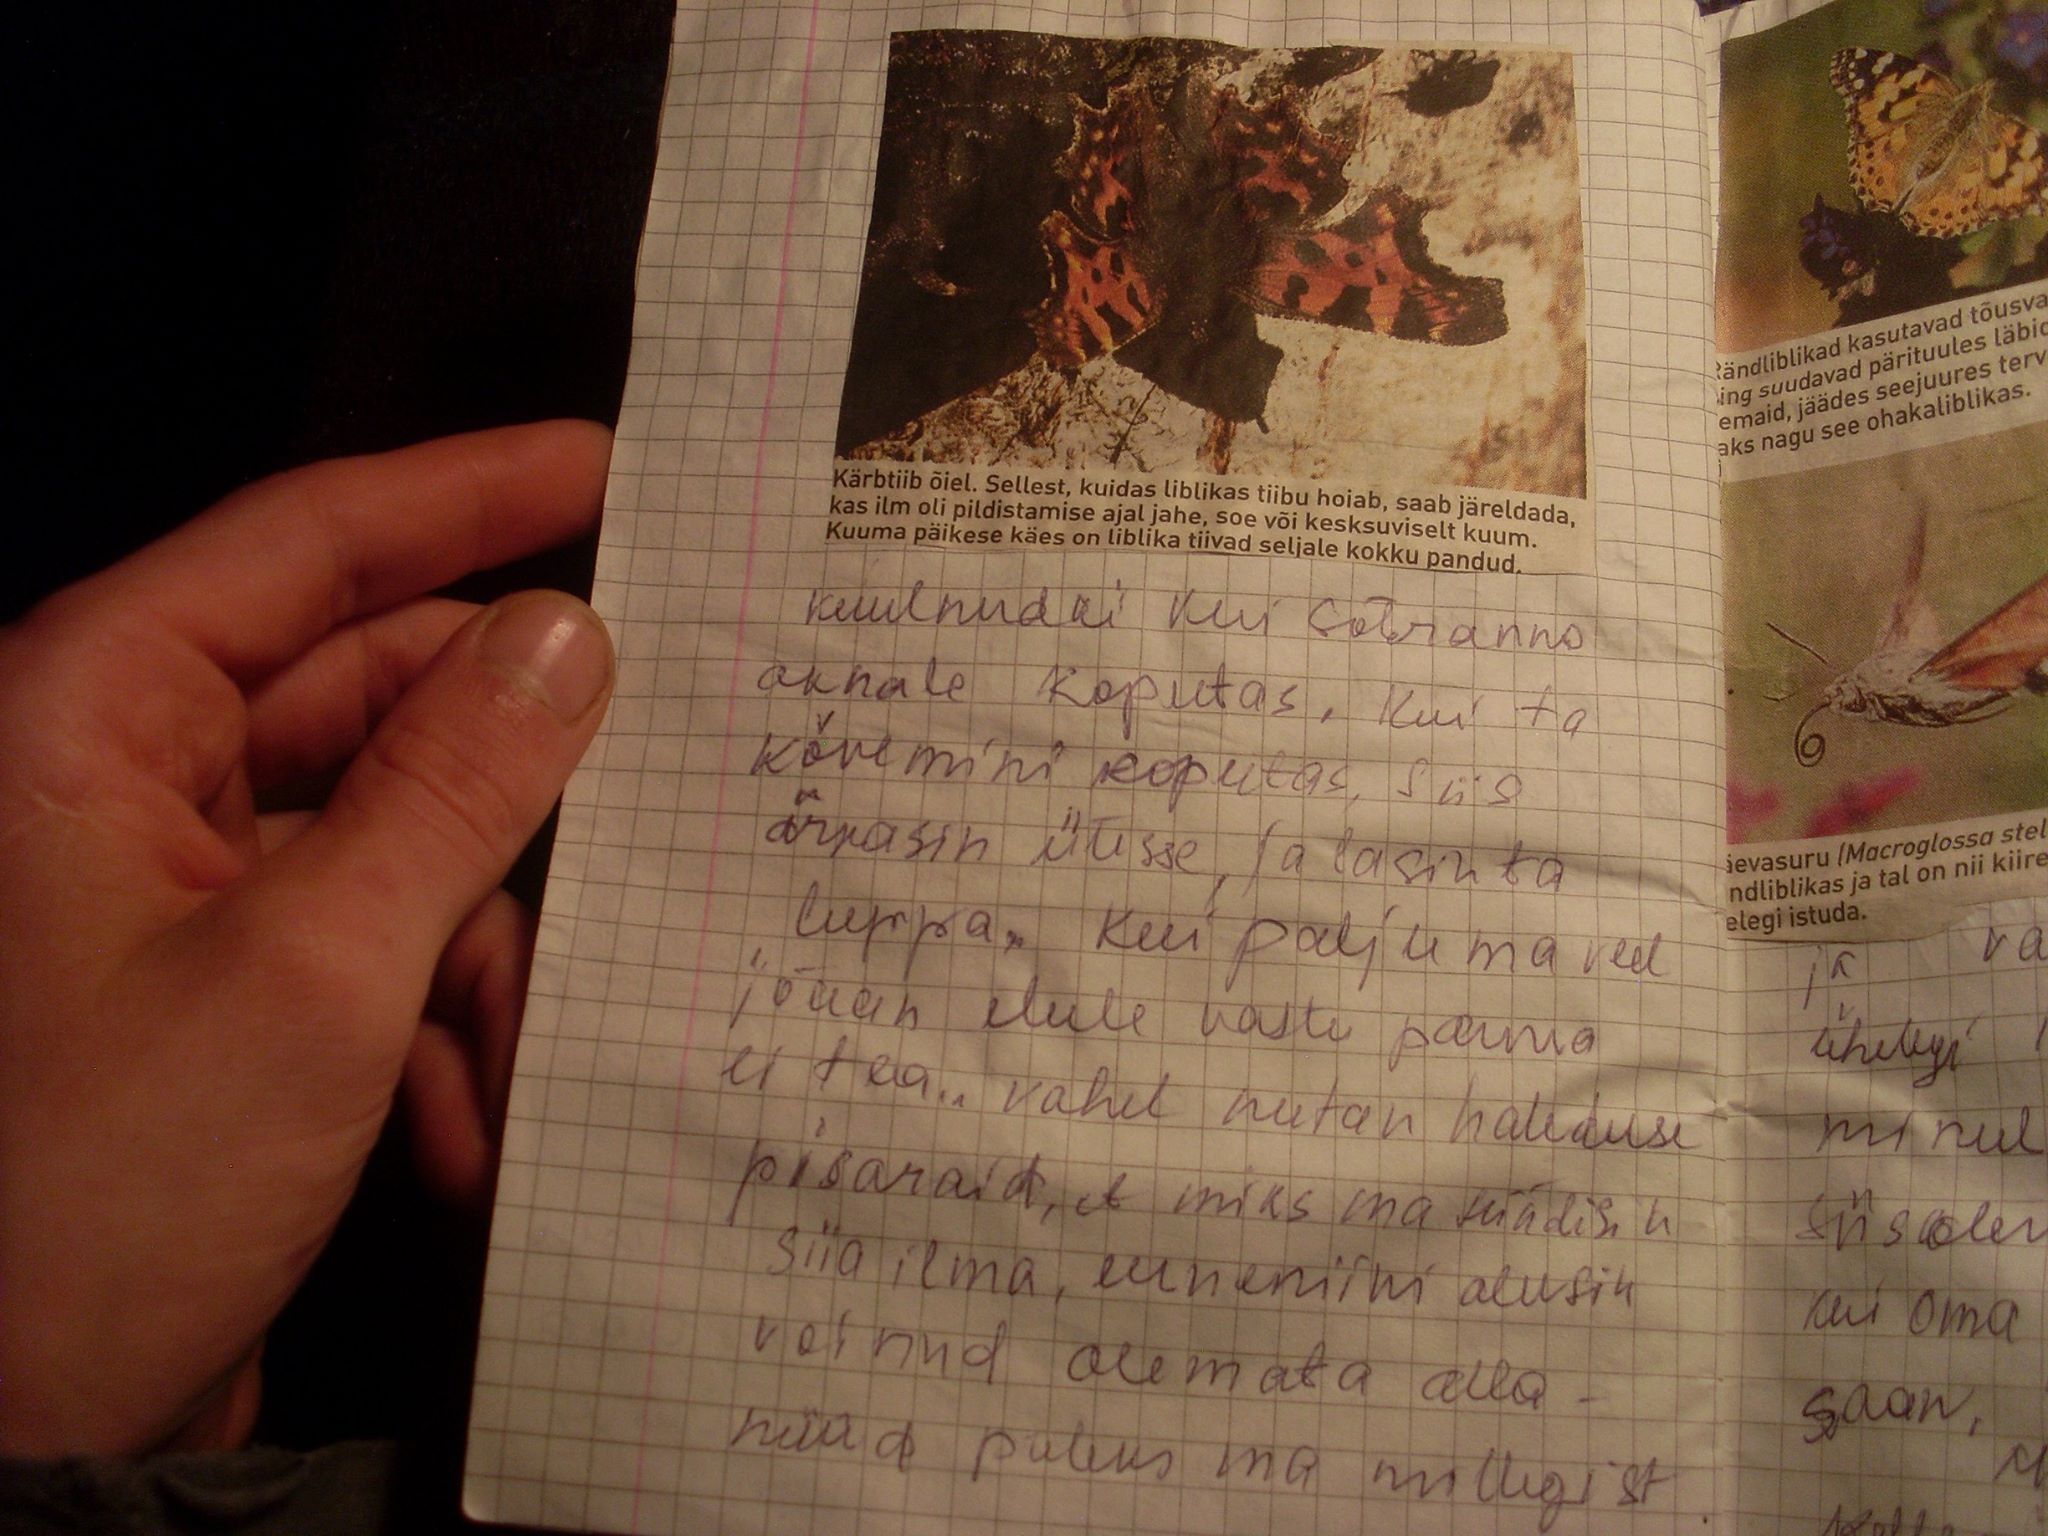 Kärbtiib õiel. Sellest, kuidas liblikas tiibu hoiab, saab järeldada,
kas ilm oli pildistamise ajal jahe, soe või kesksuviselt kuum.
Kuuma päikese käes on liblika tiivad seljale kokku pandud.
kuulnudki kui sõbranna
aknale koputas. Kui ta
kõvemini koputas, siis
ärkasin ülesse, ja lasin ta
tuppa. Kui palju ma veel
jõuan elule vastu panna
ei tea.. vahel nutan haleduse
pisaraid, et miks ma sündisin
siia ilma, ennemini oleksin
võinud olemata olla -
nüüd poleks ma millegist
Rändliblikad kasutavad tõusva
ning suudavad pärituules läbid
emaid, jäädes seejuures terv
aks nagu see ohakaliblikas.
äevasuru (Macroglossa stel
ndliblikas ja tal on nii kiire
elegi istuda.
ja va
ühelegi
minul
siis olen
kui oma
saan,